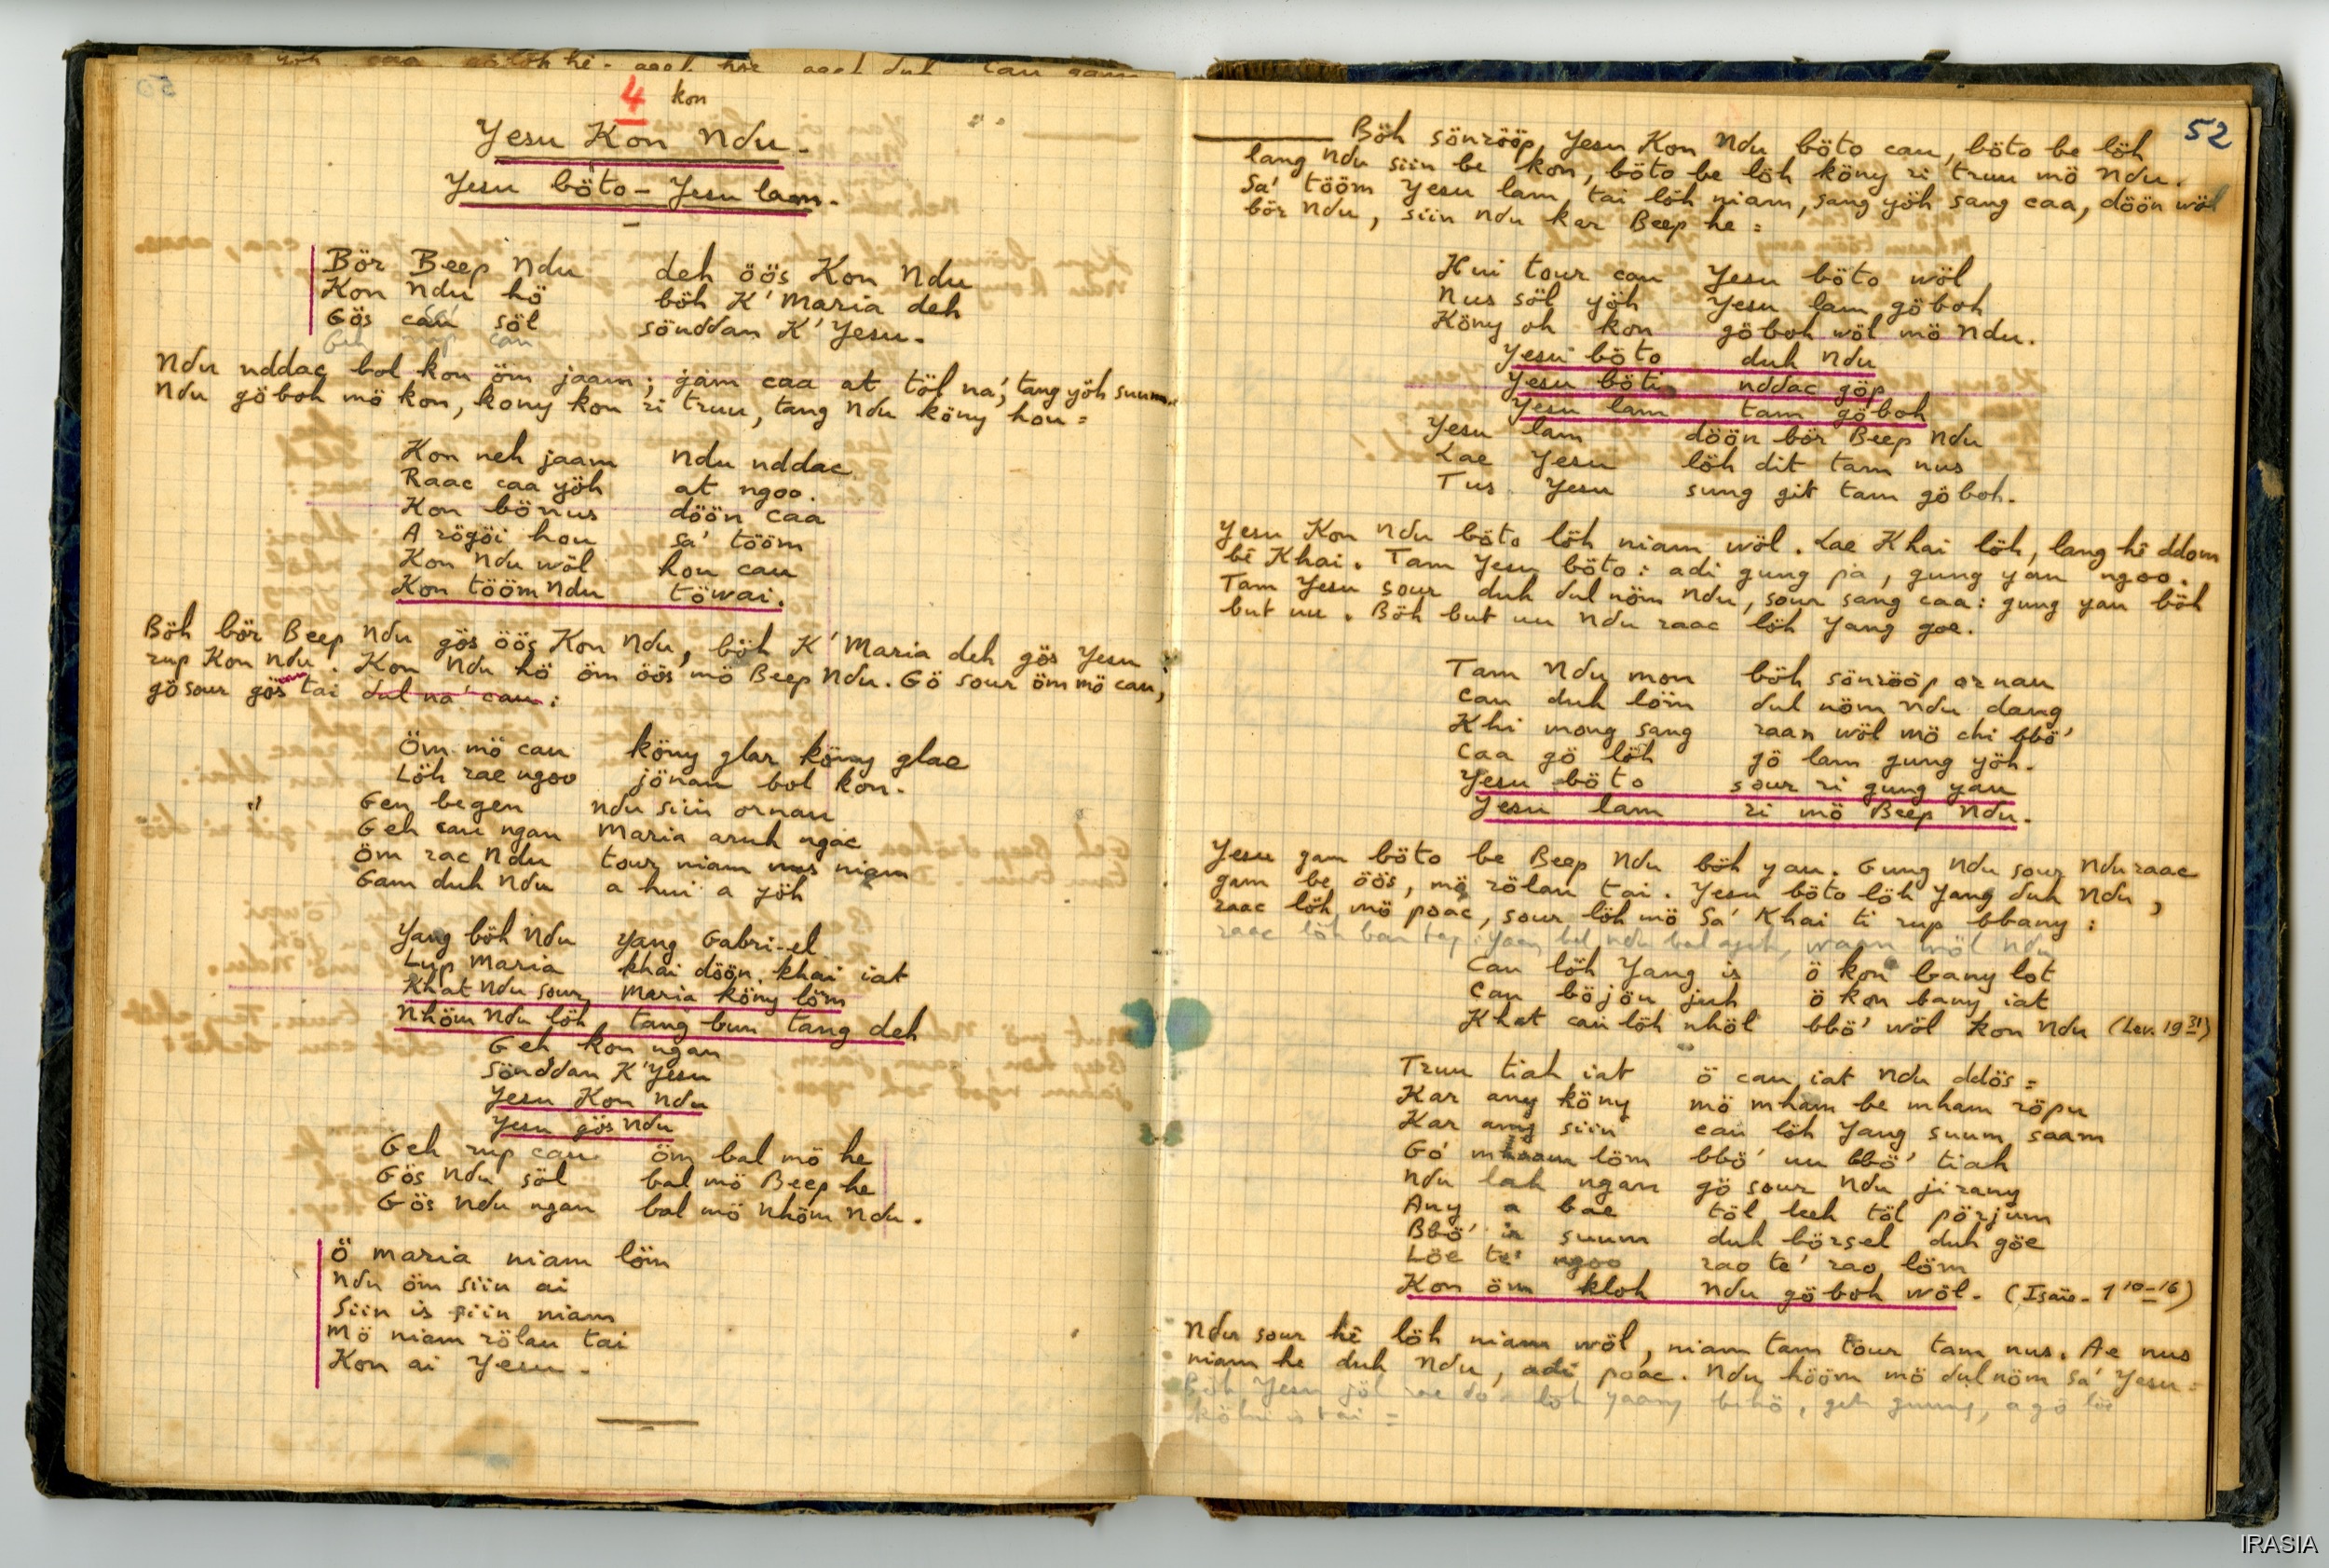 4 kon
Yesu Kon Ndu.
Yesu böto - Yesu lam.
Bör Beep Ndu deh öös Kon Ndu
Kon Ndu hö böh K'Maria deh
Gös cau söl sönddan K'Yesu.
Geh rup cau
Ndu nddac bol kon öm jaam; jam caa at töl na', tang yöh suum.
Ndu göboh mö kon, kony kon ri truu, tang Ndu köny hou =
Kon neh jaam Ndu nddac
Raac caa yöh at ngoo.
Kon bönus döön caa
A rögöi hou sa' tööm
Kon Ndu wöl hou cau
Kon tööm Ndu töwai.
Böh bör Beep Ndu gös öös Kon Ndu, böh K'Maria deh gös Yesu
rup Kon Ndu. Kon Ndu hö öm öös mö Beep Ndu. Gö sour öm mö cau,
gö sour gös tai dul na' cau :
Öm mö cau köny glar köny glae
Löh rae ngoo jönau bol kon.
Gen begen ndu siin ornau
Geh cau ngan Maria aruh ngac
Öm rac Ndu tour niam nus niam
Gam duh Ndu a hui a yöh
Yang böh Ndu Yang Gabri-el
Lup Maria khai döön, khai iat
Khat Ndu sour, Maria köny löm
Nhöm Ndu löh, tang bun tang deh
Geh kon ngan
Sönddan K'Yesu
Yesu Kon Ndu
Yesu gös Ndu
Geh rup cau öm bal mö he
Gös Ndu söl bal mö Beep he
Gös Ndu ngan bal mö Nhöm Ndu.
Ö Maria niam löm
Ndu öm siin ai
Siin is siin niam
Mö niam rölau tai
Kon ai Yesu.
52
Böh sönrööp, Yesu Kon Ndu böto cau, böto be löh
lang Ndu siin be kon, böto be löh köny ri truu mö Ndu.
Sa' tööm Yesu lam, tai löh niam, sang yöh sang caa, döön wöl
bör Ndu, siin Ndu kar Beep he =
Hui tour cau Yesu böto wöl
Nus söl yöh Yesu lam göboh
Köny oh kon göboh wöl mö Ndu.
Yesu böto duh Ndu
Yesu böto nddac göp
Yesu lam tam göboh
Yesu lam döön bör Beep Ndu
Lae Yesu löh dit tam nus
Tus Yesu sung git tam göboh.
Yesu Kon Ndu böto löh niam wöl. Lae Khai löh, lang hê ddom
bê Khai. Tam Yesu böto : adi gung pa, gung yau ngoo.
Tam Yesu sour duh dul nöm Ndu, sour sang caa : gung yau böh
but uu. Böh but uu Ndu raac löh Yang goe.
Tam Ndu mon böh sönrööp ornau
Cau duh löm dul nöm Ndu dang
Khi mong sang raan wöl mö chi bbö'
Caa gö löh gö lam gung yöh.
Yesu böto sour ri gung yau
Yesu lam ri mö Beep Ndu.
Yesu gam böto be Beep Ndu böh yau. Gung Ndu sour Ndu raac
gam be öös, mö rölau tai. Yesu böto löh Yang duh Ndu,
raac löh mö poac, sour löh mö Sa' Khai ti rup bbany :
Cau löh Yang is ö kon bany lot
Cau böjöu juh ö kon bany iat
Khat cau löh nhöl bbö' wöl kon Ndu (Lev. 19 31)
Truu tiah iat ö cau iat Ndu ddös =
Kar any köny mö mham be mham röpu
Kar any siin cau löh Yang suum saam
Gö' löm bbö' uu bbö' tiah
Ndu lah ngan gö sour Ndu jirany
Any a bae töl leeh töl pörjum
Bbö' ir suum duh börsel duh göe
Löe te' ngoo rao te' rao löm
Kon öm kloh Ndu göboh wöl. (Isaïe - 1 10-16)
Ndu sour hê löh niam wöl, niam tam tour tam nus. Ae nus
niam he duh Ndu, adi poac. Ndu hööm mö dul nöm Sa' Yesu =
IRASIA